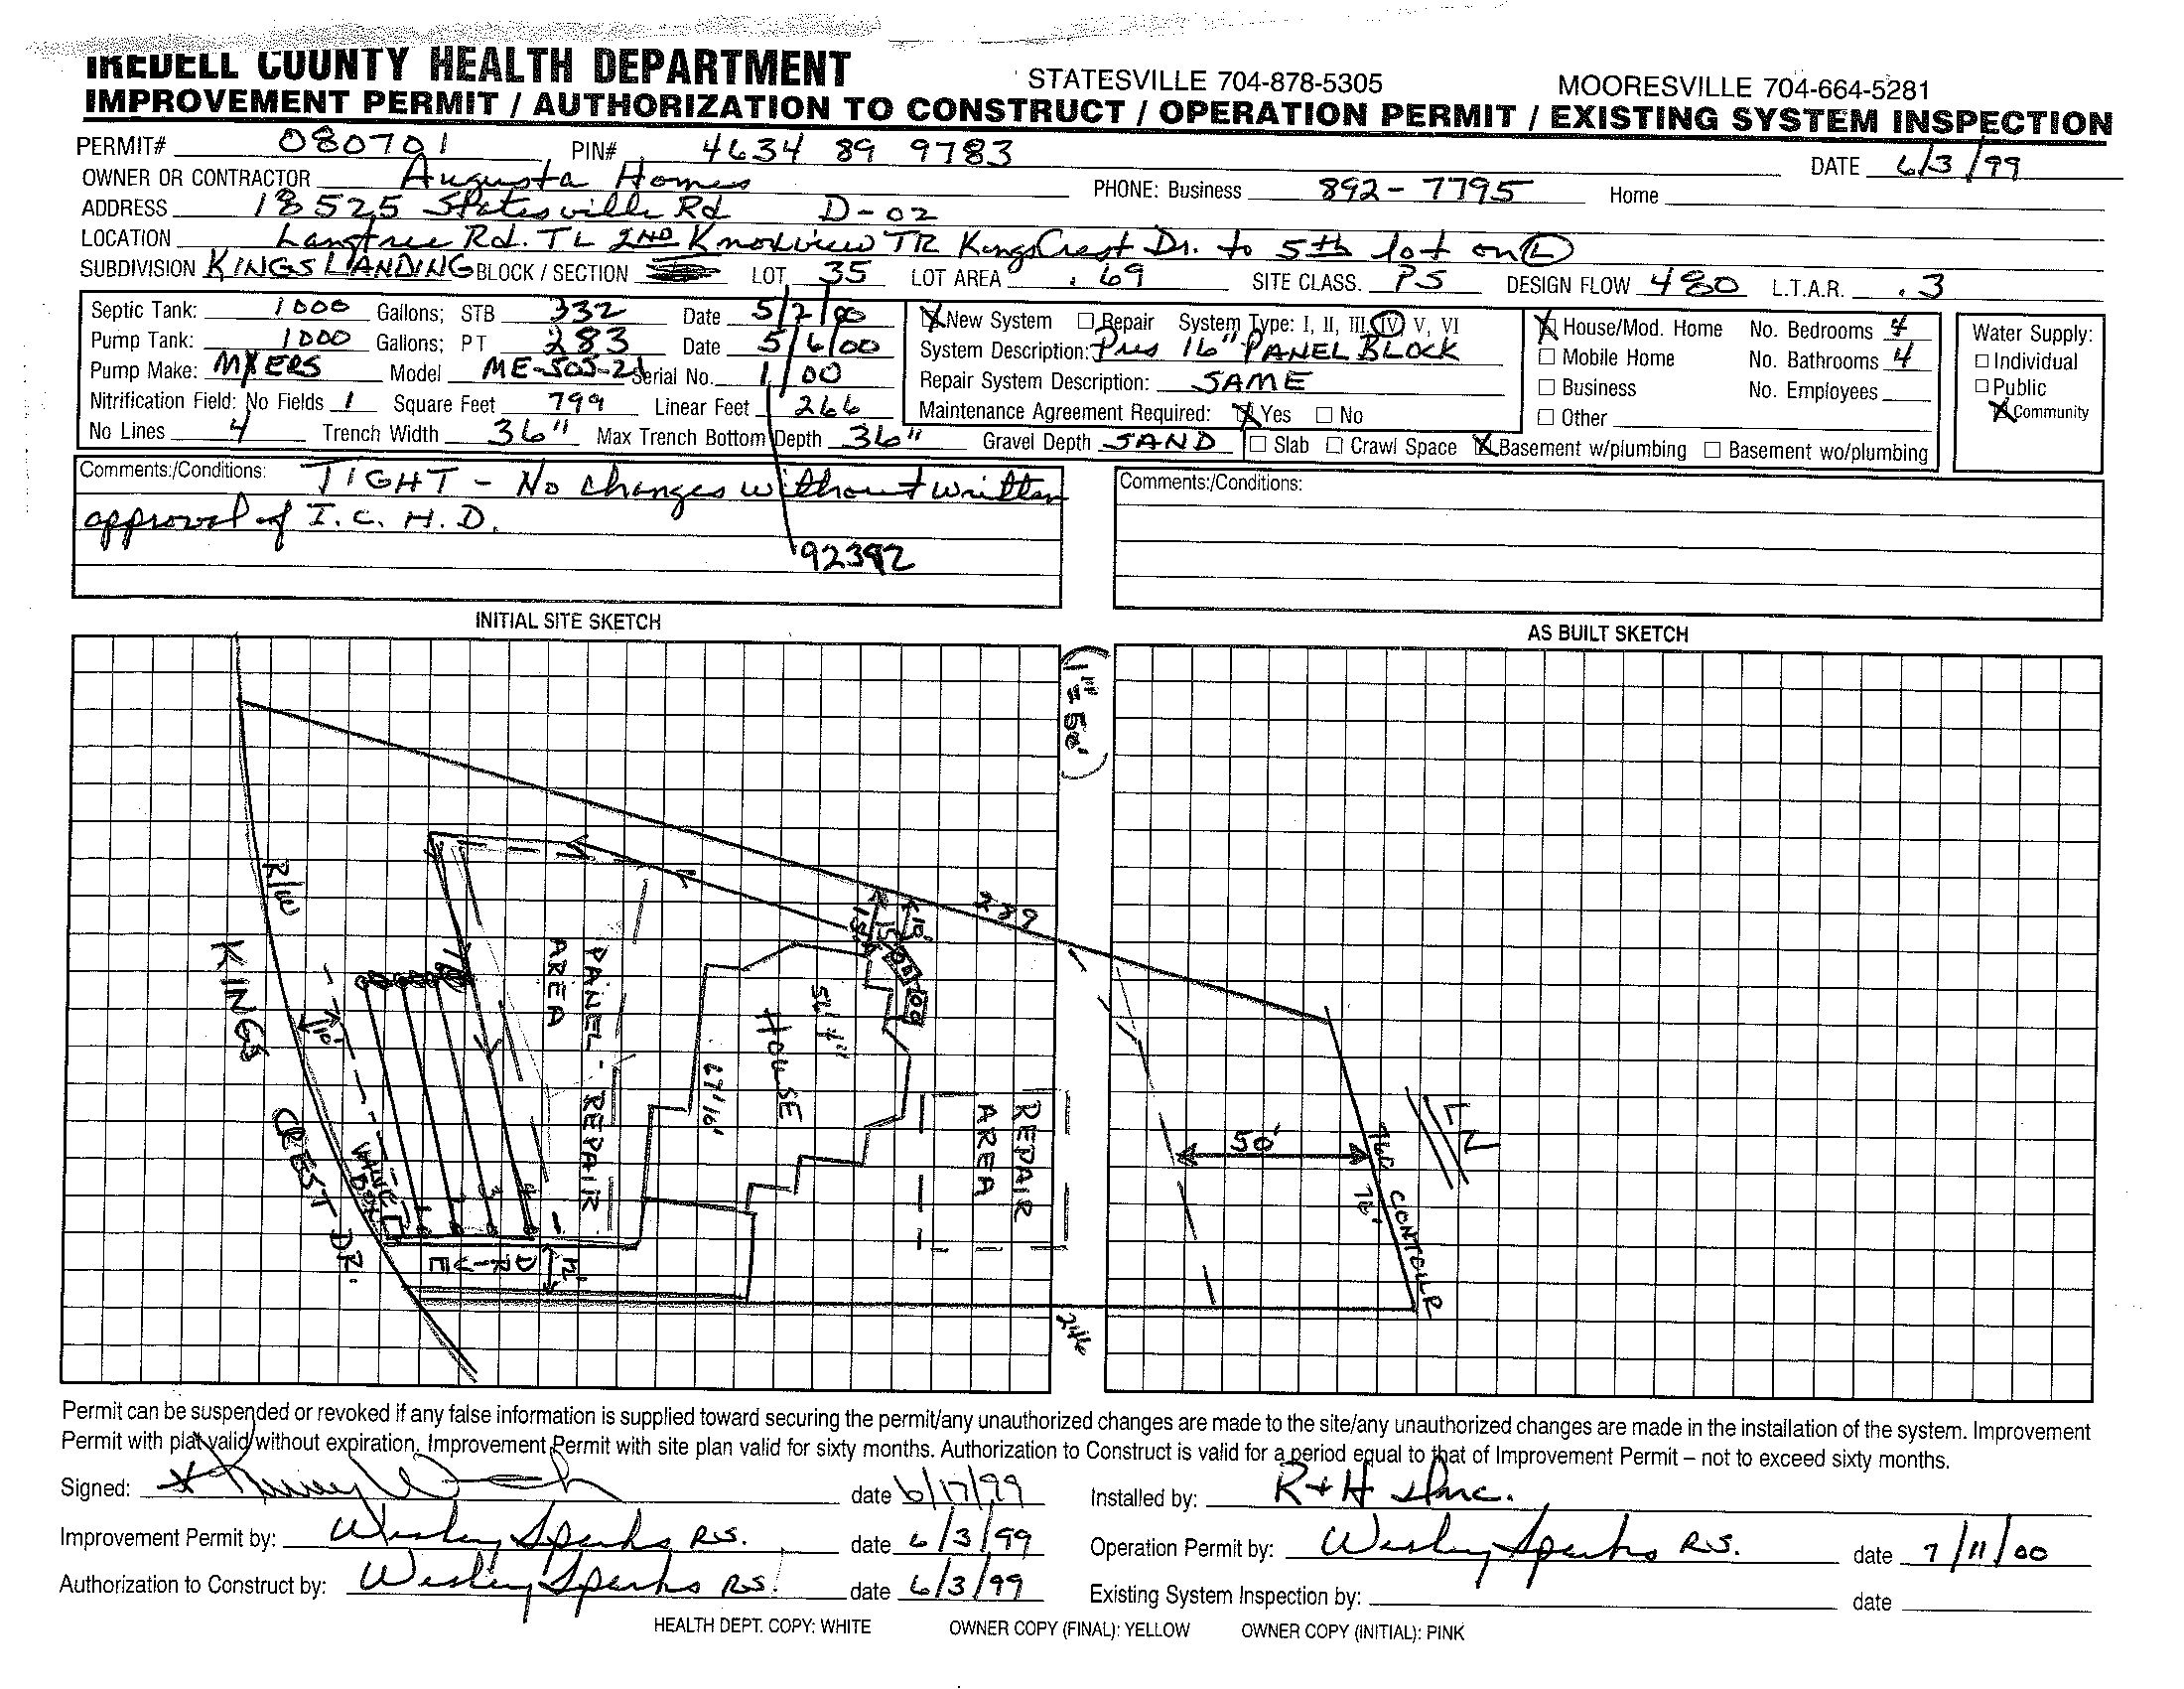 IREDELL COUNTY HEALTH DEPARTMENT STATESVILLE 704-878-5305 MOORESVILLE 704-664-5281
IMPROVEMENT PERMIT / AUTHORIZATION TO CONSTRUCT / OPERATION PERMIT / EXISTING SYSTEM INSPECTION
PERMIT# 080701 PIN# 4634 89 9783 DATE 6/3/99
OWNER OR CONTRACTOR Augusta Homes PHONE: Business 892-7795 Home
ADDRESS 18525 Statesville Rd D-02
LOCATION Langtree Rd. TL 2ND Knoxview TR KingsCrest Dr. to 5th lot on L
SUBDIVISION KINGS LANDING BLOCK / SECTION LOT 35 LOT AREA .69 SITE CLASS. PS DESIGN FLOW 480 L.T.A.R. .3
Septic Tank: 1000 Gallons; STB 332 Date 5/2/00
Pump Tank: 1000 Gallons; PT 283 Date 5/6/00
Pump Make: MYERS Model ME-50S-21 Serial No. 1/00
Nitrification Field: No Fields 1 Square Feet 799 Linear Feet 266
No Lines 4 Trench Width 36" Max Trench Bottom Depth 36" Gravel Depth SAND
New System Repair System Type: I, II, III, IV, V, VI
System Description: Pres 16" PANEL BLOCK
Repair System Description: SAME
Maintenance Agreement Required: Yes No
House/Mod. Home No. Bedrooms 4
Mobile Home No. Bathrooms 4
Business No. Employees
Other
Slab Crawl Space Basement w/plumbing Basement wo/plumbing
Water Supply:
Individual
Public
Community
Comments:/Conditions: TIGHT - No changes without written
approval of I.C.H.D.
92392
Comments:/Conditions:
INITIAL SITE SKETCH
AS BUILT SKETCH
(1" = 50')
R/W
KINGS CREST DR.
10'
PANEL - REPAIR
AREA
HOUSE
15'
15'
10'
289
REPAIR
AREA
DRIVE
12'
246
50'
760 CONTOUR
76'
LN
Permit can be suspended or revoked if any false information is supplied toward securing the permit/any unauthorized changes are made to the site/any unauthorized changes are made in the installation of the system. Improvement
Permit with plat valid without expiration, Improvement Permit with site plan valid for sixty months. Authorization to Construct is valid for a period equal to that of Improvement Permit – not to exceed sixty months.
Signed: date 6/17/99 Installed by: R+H Inc.
Improvement Permit by: Wesley Sparks R.S. date 6/3/99 Operation Permit by: Wesley Sparks R.S. date 7/11/00
Authorization to Construct by: Wesley Sparks R.S. date 6/3/99 Existing System Inspection by: date
HEALTH DEPT. COPY: WHITE OWNER COPY (FINAL): YELLOW OWNER COPY (INITIAL): PINK